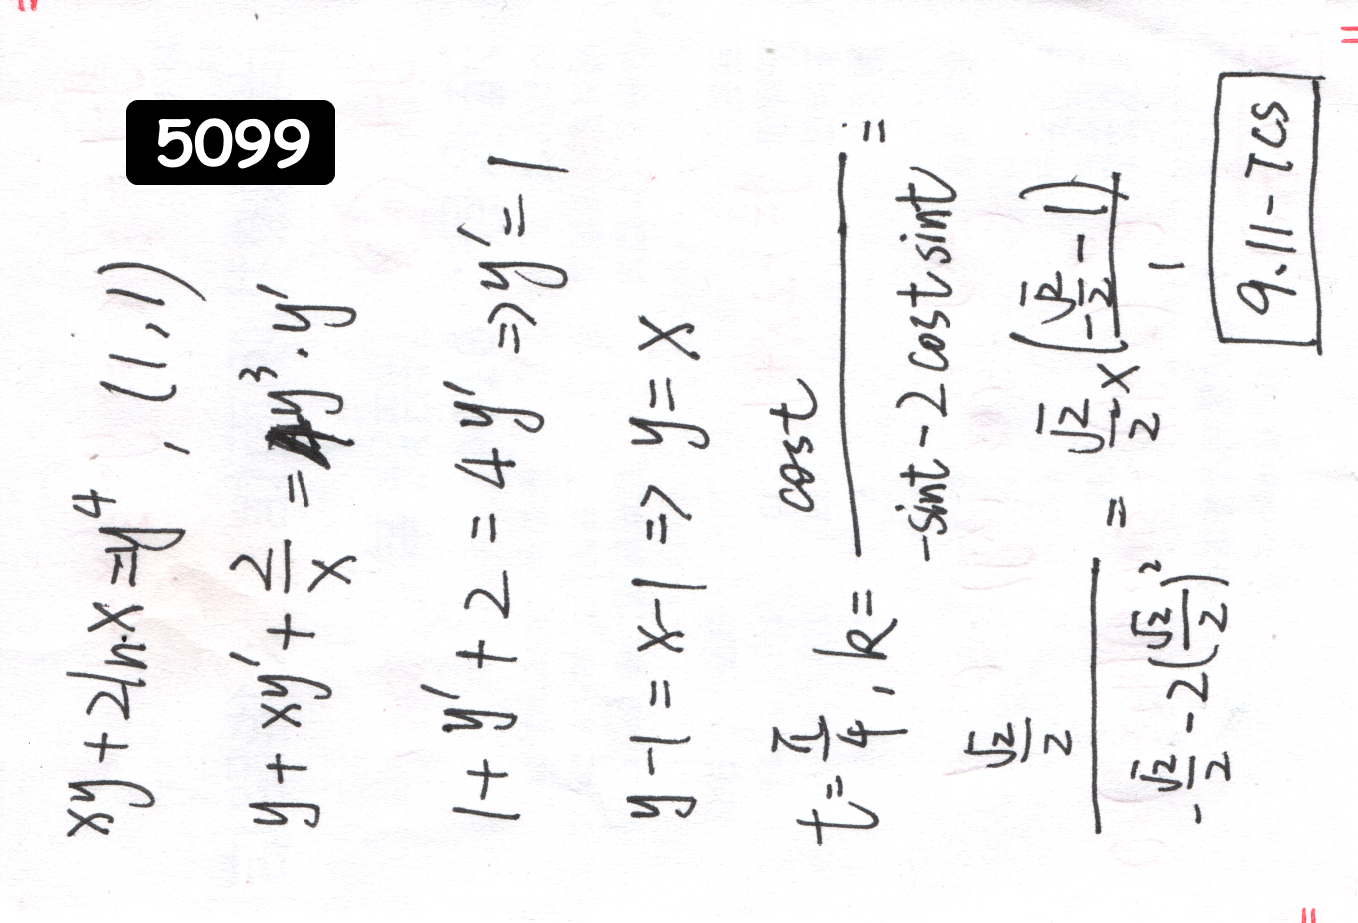 5099
xy + 2ln x = y⁴ , (1,1)
y + xy' + 2/x = 4y³ · y'
1 + y' + 2 = 4y' => y' = 1
y-1 = x-1 => y = x
t = π/4 , k = cost / (-sint - 2costsint) =
(√2/2) / (-√2/2 - 2(√2/2)²) = √2/2 × (-√2/2 - 1) / 1
9.11-7CS